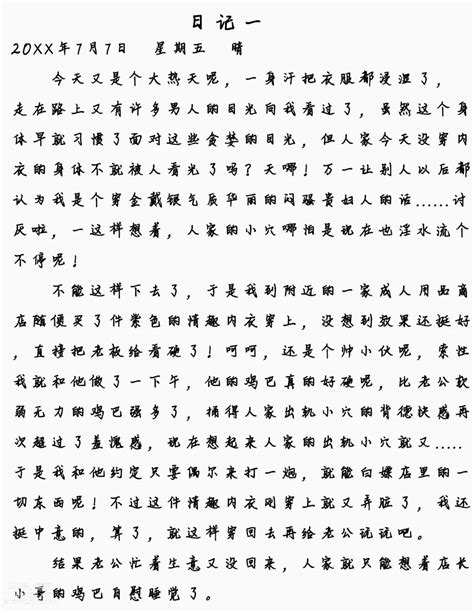 日记一
20XX年7月7日 星期五 晴
今天又是个大热天呢，一身汗把衣服都浸湿了，
走在路上又有许多男人的目光向我看过了，虽然这个身
体早就习惯了面对这些贪婪的目光，但人家今天没穿内
衣的身体不就被人看光了吗？天哪！万一让别人以后都
认为我是个穿金戴银气质华丽的闷骚贵妇人的话……讨
厌啦，一这样想着，人家的小穴哪怕是现在也淫水流个
不停呢！
不能这样下去了，于是我到附近的一家成人用品商
店随便买了件紫色的情趣内衣穿上，没想到效果还挺好
，直接把老板给看硬了！呵呵，还是个帅小伙呢，索性
我就和他做了一下午，他的鸡巴真的好硬呢，比老公软
弱无力的鸡巴强多了，捅得人家出轨小穴的背德快感再
次超过了羞愧感，现在想起来人家的出轨小穴就又……
于是我和他约定只要偶尔来打一炮，就能白嫖店里的一
切东西呢！不过这件情趣内衣刚穿上就又弄脏了，我还
挺中意的，算了，就这样穿回去再给老公说说吧。
结果老公忙着生意又没回来，人家就只能想着店长
小哥的鸡巴自慰睡觉了。